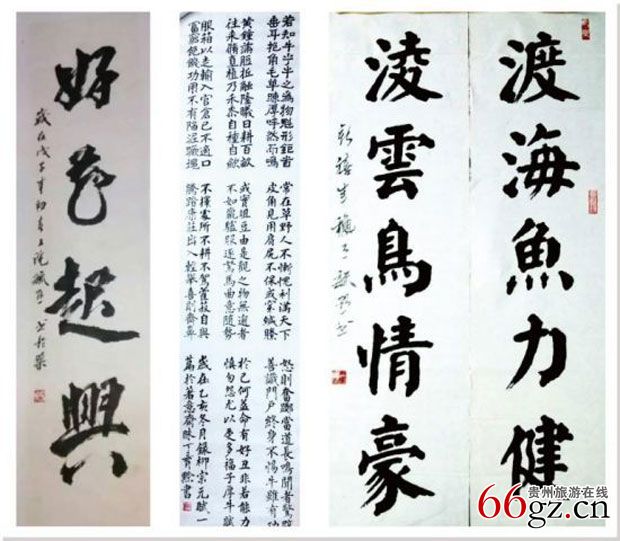 渡海魚力健
凌雲鳥情豪
若知牛乎牛之為物魁形鉅首
垂耳抱角毛革疎厚牟然而鳴
黃鍾滿脰抵觸隆曦日耕百畝
往來修直植乃禾黍自種自斂
服箱以走輸入官倉己不適口
富窮飽饑功用不有陷泥蹶塊
常在草野人不慚愧利滿天下
皮角見用肩尻不保或穿緘縢
或實俎豆由是觀之物無逾者
不如羸驢服逐駑馬曲意隨勢
不擇處所不耕不駕藿菽自與
騰踏康莊出入輕舉喜則齊鼻
怒則奮躑當道長鳴聞者驚辟
善識門戶終身不惕牛雖有功
於己何益命有好丑非若能力
慎勿怨尤以受多福子厚牛賦
歲在乙亥冬月錄柳宗元賦一
好花起興
歲在戊子年初
贵州旅游在线
66gz.cn